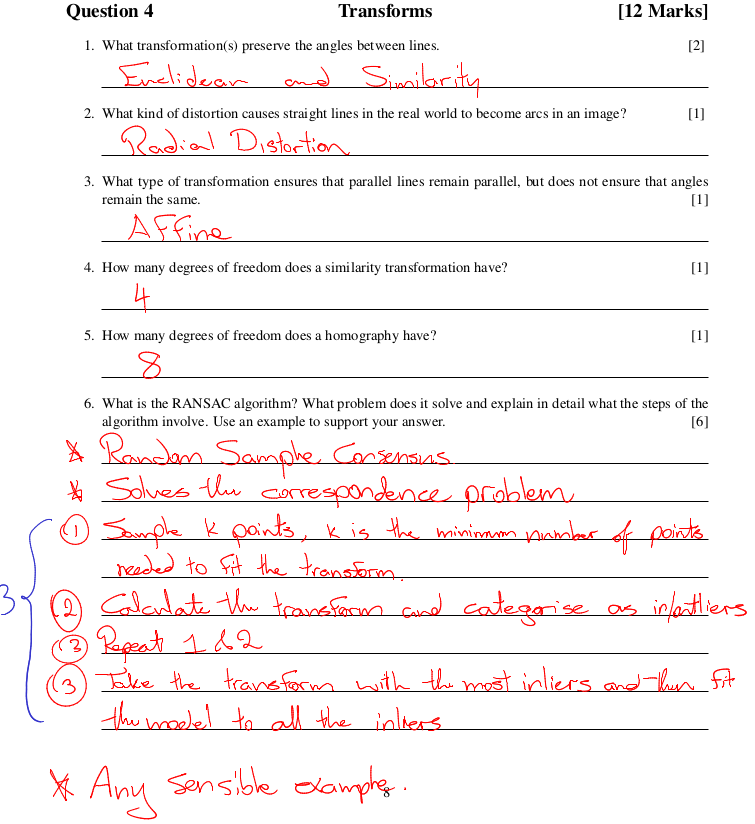 Question 4 Transforms [12 Marks]
1. What transformation(s) preserve the angles between lines. [2]
Euclidean and Similarity
2. What kind of distortion causes straight lines in the real world to become arcs in an image? [1]
Radial Distortion
3. What type of transformation ensures that parallel lines remain parallel, but does not ensure that angles
remain the same. [1]
Affine
4. How many degrees of freedom does a similarity transformation have? [1]
4
5. How many degrees of freedom does a homography have? [1]
8
6. What is the RANSAC algorithm? What problem does it solve and explain in detail what the steps of the
algorithm involve. Use an example to support your answer. [6]
* Random Sample Consensus
* Solves the correspondence problem
3
(1) Sample k points, k is the minimum number of points
needed to fit the transform.
(2) Calculate the transform and categorise as in/outliers
(3) Repeat 1 & 2
(3) Take the transform with the most inliers and then fit
the model to all the inliers
* Any sensible example.
8